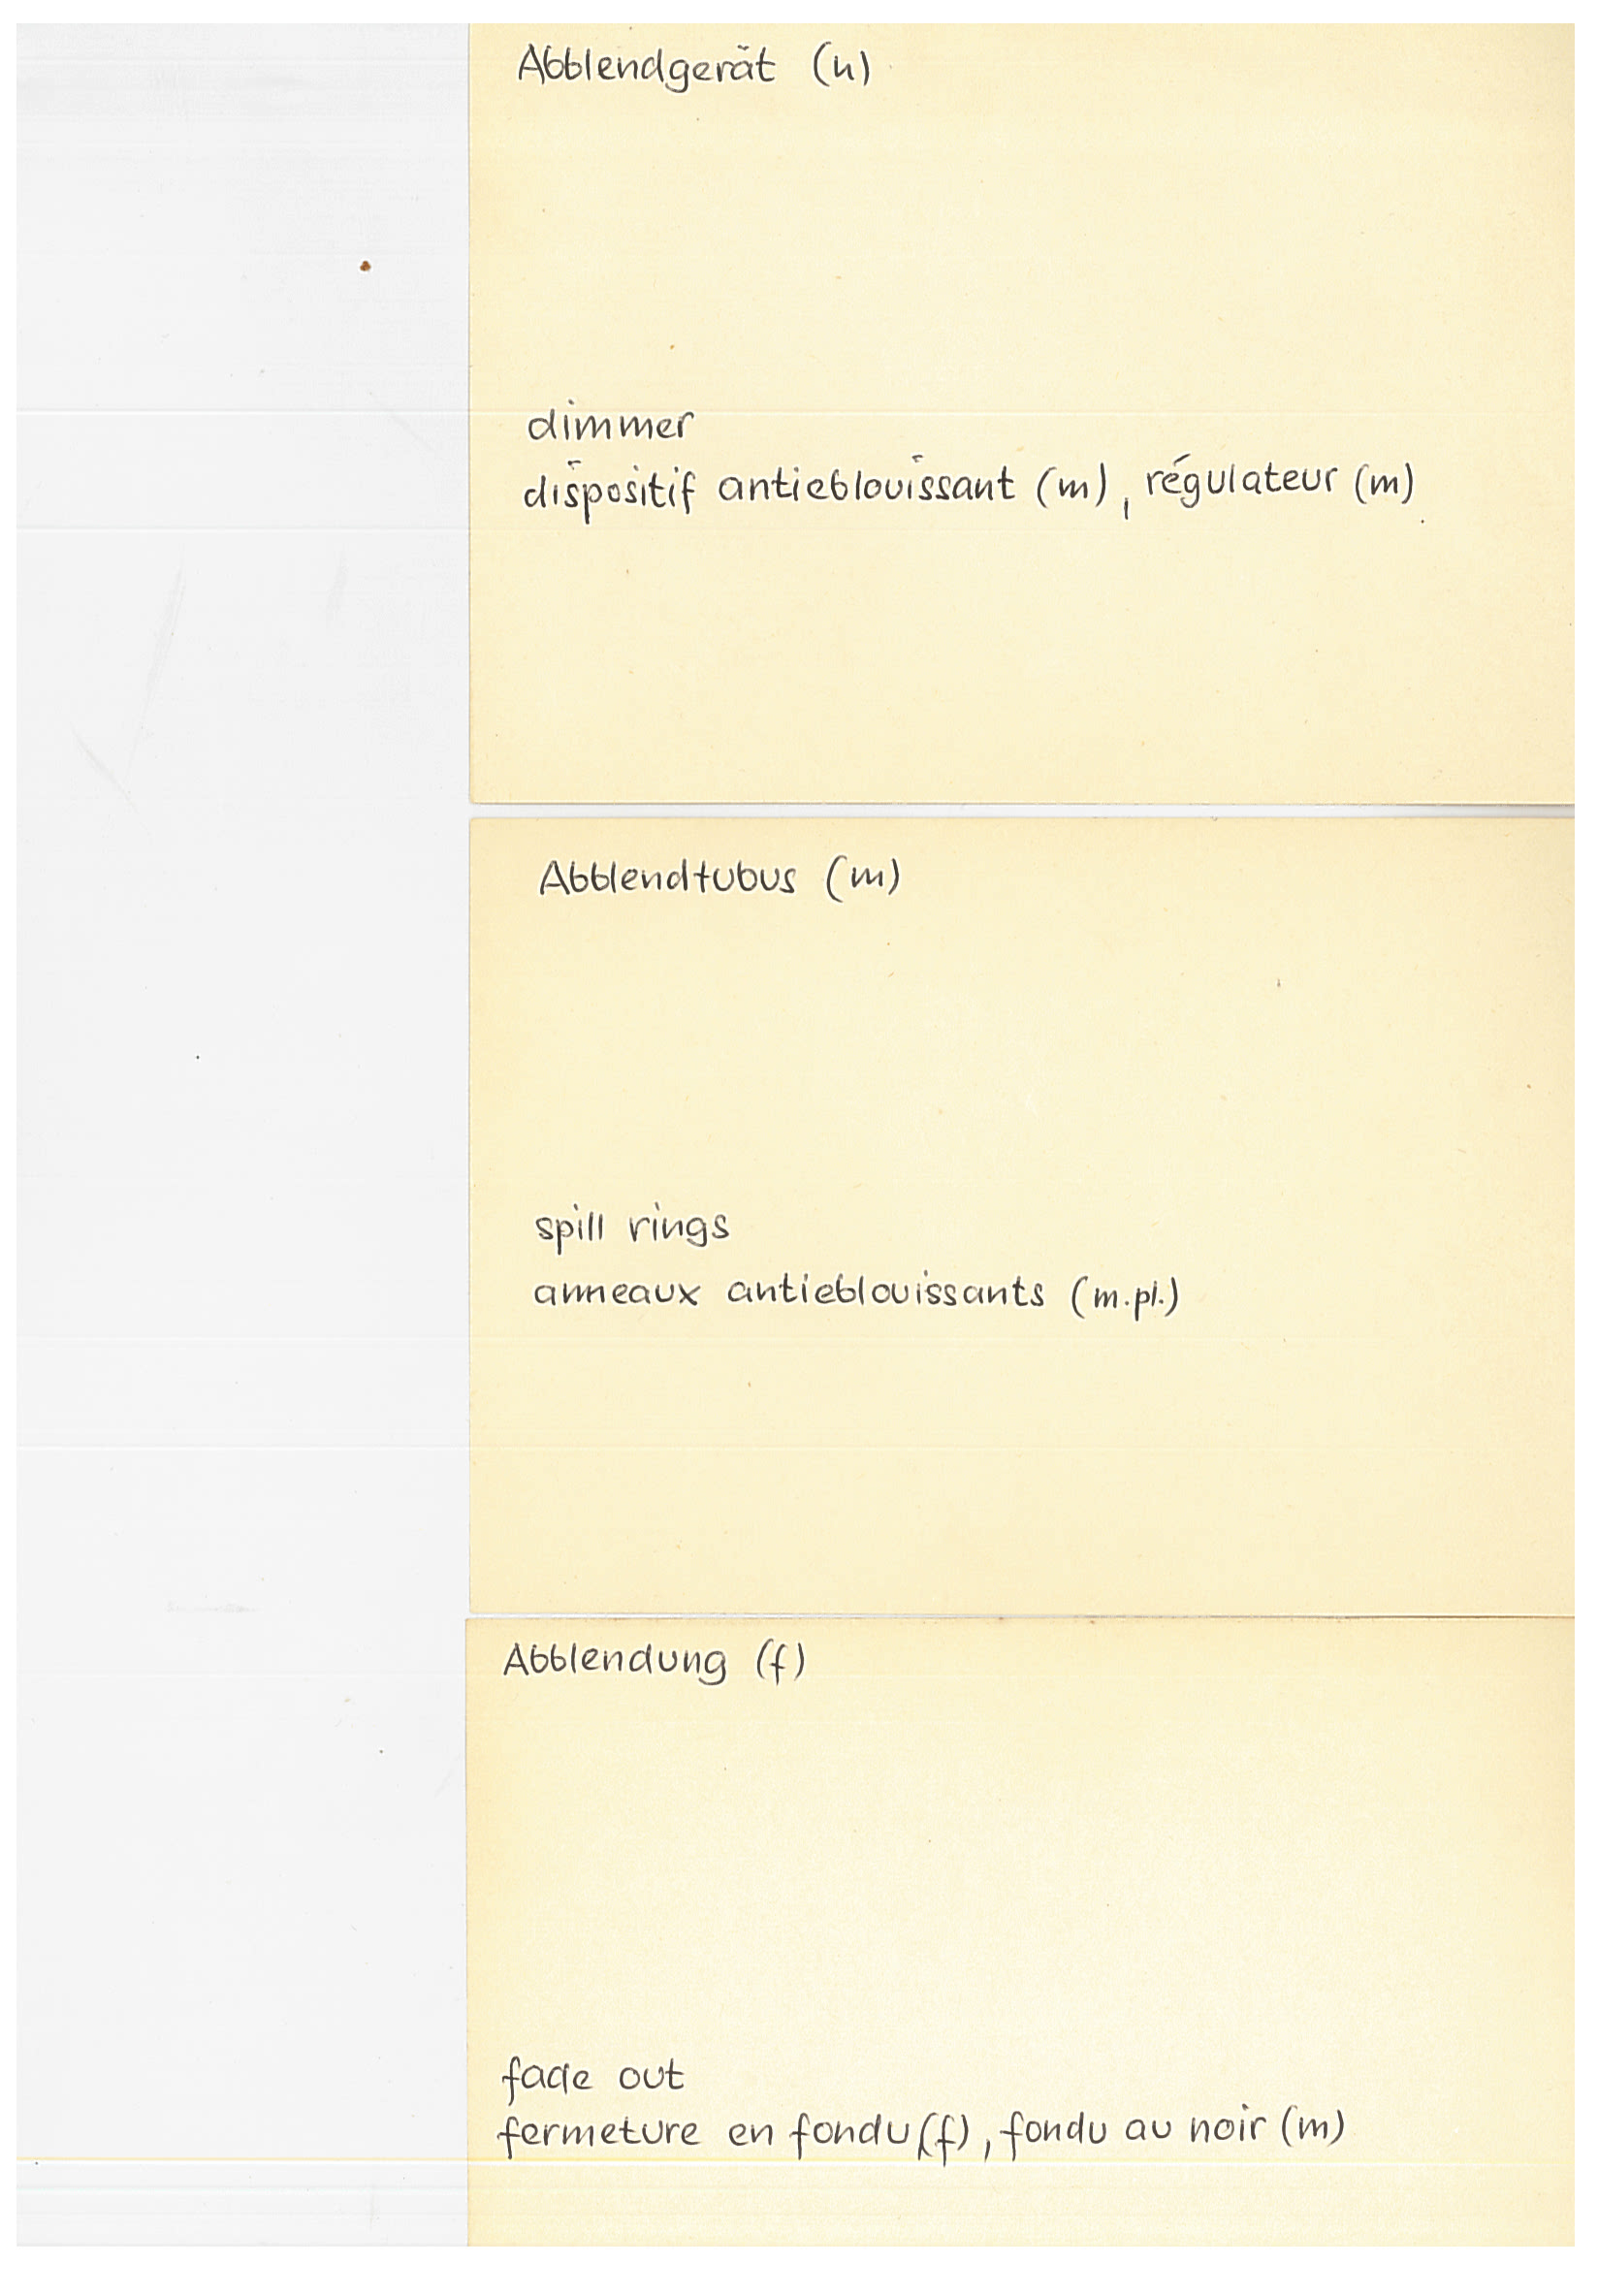 Abblendgerät (n)
dimmer
dispositif antieblouissant (m), régulateur (m)
Abblendtubus (m)
spill rings
anneaux antieblouissants (m.pl.)
Abblendung (f)
fade out
fermeture en fondu (f), fondu au noir (m)